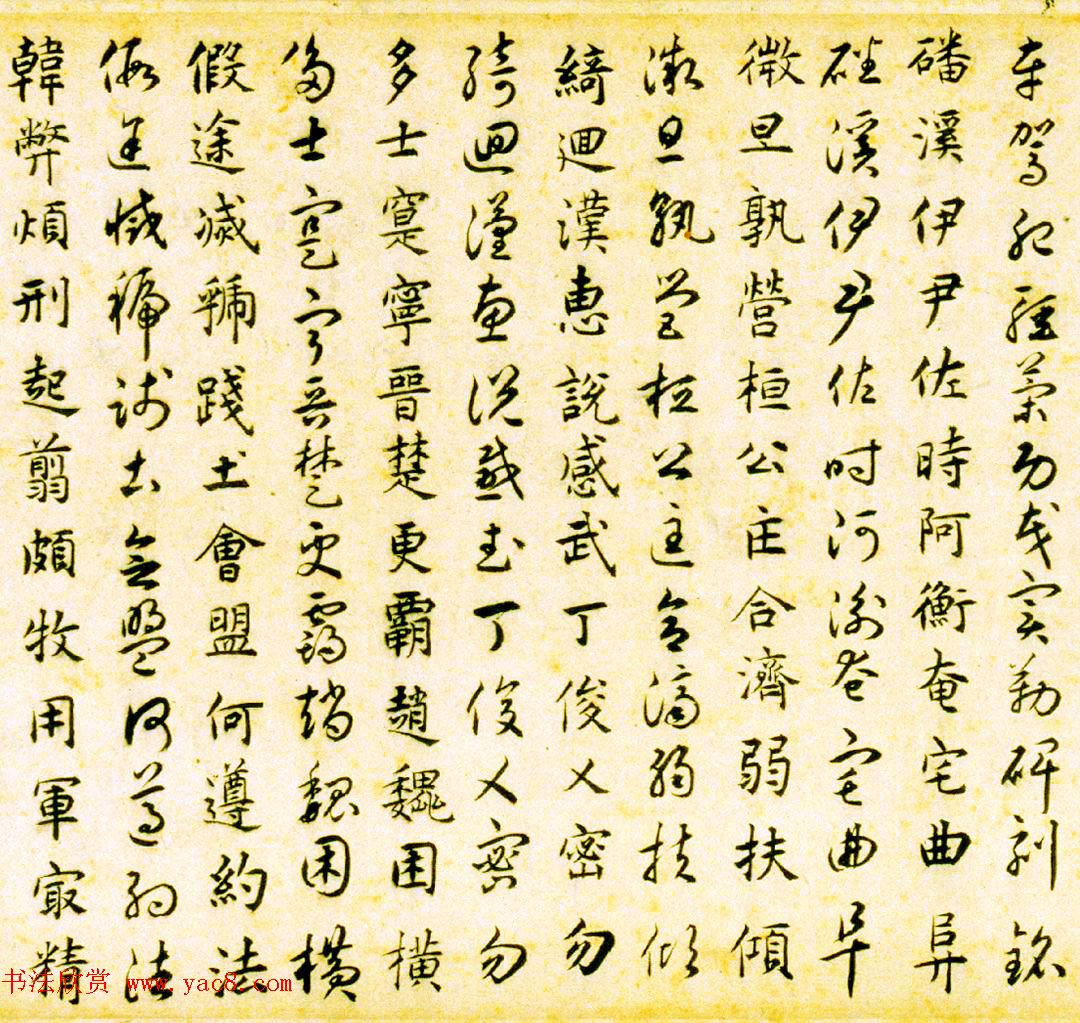 車駕肥輕策功茂實勒碑刻銘
磻溪伊尹佐時阿衡奄宅曲阜
磻溪伊尹佐時阿衡奄宅曲阜
微旦孰營桓公匡合濟弱扶傾
微旦孰營桓公匡合濟弱扶傾
綺迴漢惠說感武丁俊乂密勿
綺迴漢惠說感武丁俊乂密勿
多士寔寧晉楚更霸趙魏困橫
多士寔寧晉楚更霸趙魏困橫
假途滅虢踐土會盟何遵約法
假途滅虢踐土會盟何遵約法
韓弊煩刑起翦頗牧用軍最精
书法欣赏 www.yac8.com